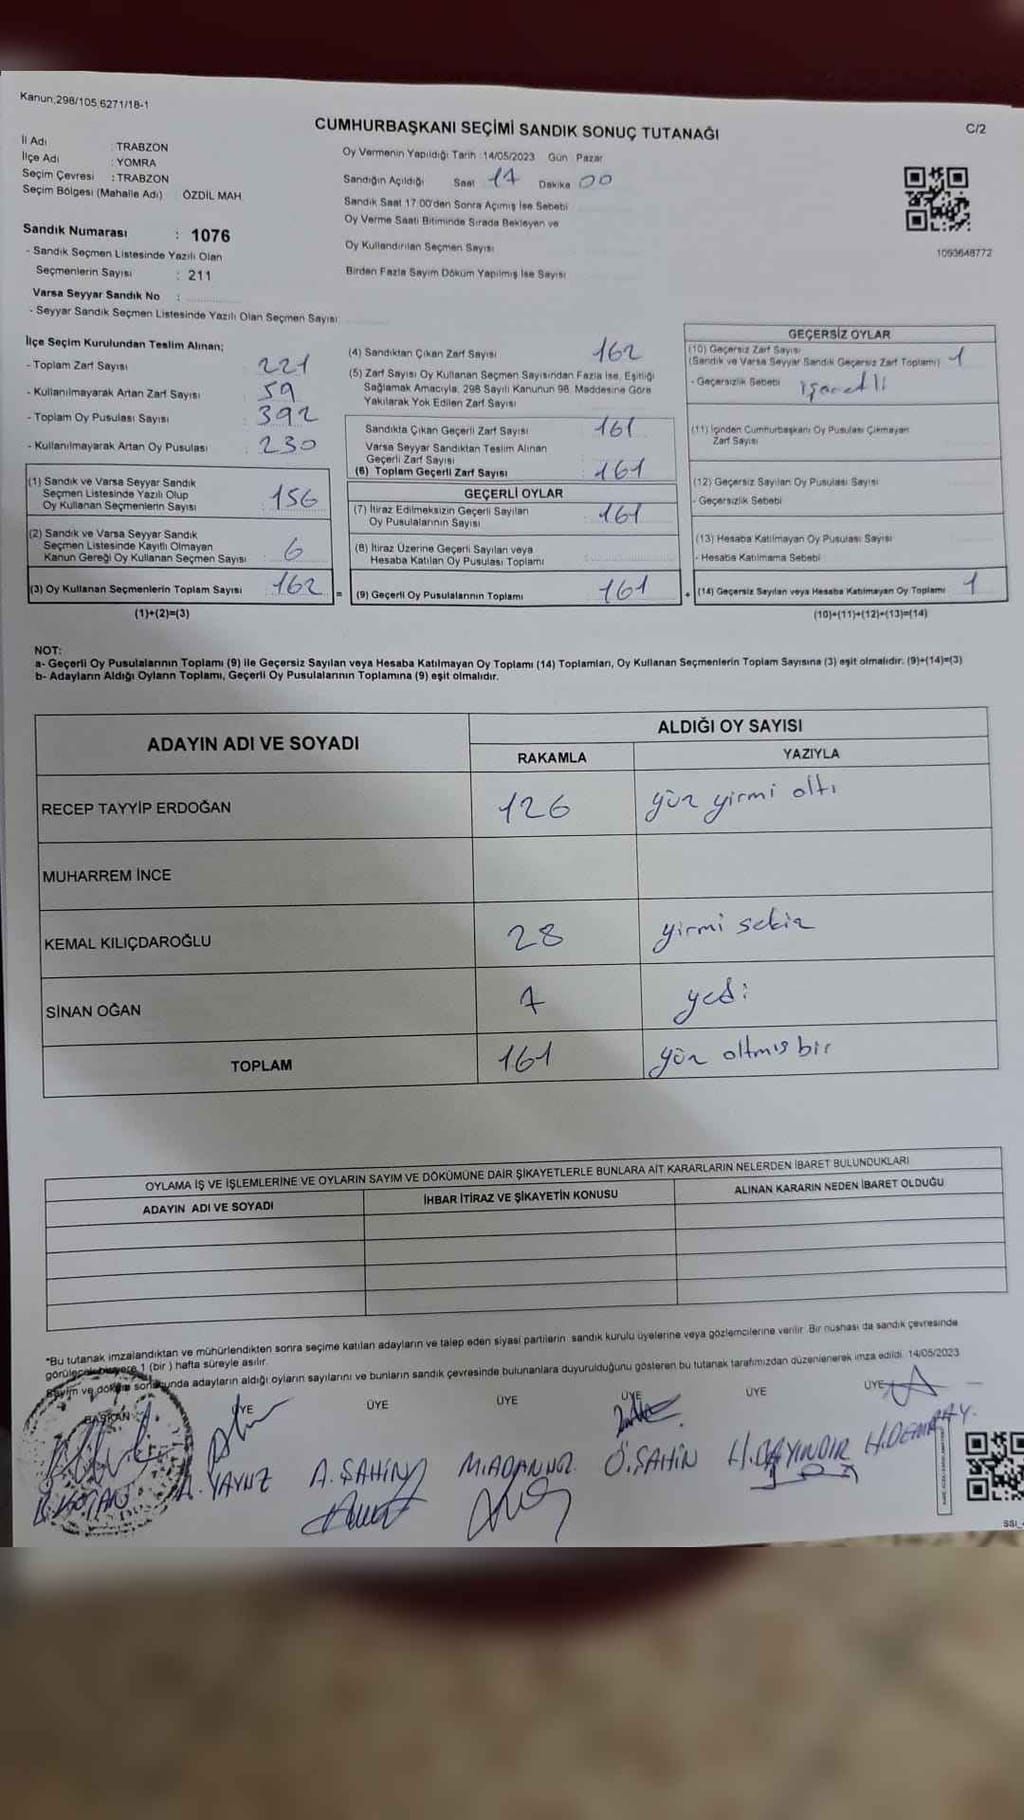 Kanun.298/105,6271/18-1
CUMHURBAŞKANI SEÇİMİ SANDIK SONUÇ TUTANAĞI
C/2
İl Adı : TRABZON
İlçe Adı : YOMRA
Seçim Çevresi : TRABZON
Seçim Bölgesi (Mahalle Adı) : ÖZDİL MAH
Sandık Numarası : 1076
- Sandık Seçmen Listesinde Yazılı Olan
Seçmenlerin Sayısı : 211
Varsa Seyyar Sandık No :
- Seyyar Sandık Seçmen Listesinde Yazılı Olan Seçmen Sayısı:
Oy Vermenin Yapıldığı Tarih :14/05/2023 Gün Pazar
Sandığın Açıldığı Saat 17 Dakika 00
Sandık Saat 17:00'den Sonra Açımış İse Sebebi
Oy Verme Saati Bitiminde Sırada Bekleyen ve
Oy Kullandırılan Seçmen Sayısı
Birden Fazla Sayım Döküm Yapılmış İse Sayısı
1093648772
İlçe Seçim Kurulundan Teslim Alınan;
- Toplam Zarf Sayısı : 221
- Kullanılmayarak Artan Zarf Sayısı : 59
- Toplam Oy Pusulası Sayısı : 392
- Kullanılmayarak Artan Oy Pusulası : 230
(1) Sandık ve Varsa Seyyar Sandık
Seçmen Listesinde Yazılı Olup
Oy Kullanan Seçmenlerin Sayısı : 156
(2) Sandık ve Varsa Seyyar Sandık
Seçmen Listesinde Kayıtlı Olmayan
Kanun Gereği Oy Kullanan Seçmen Sayısı : 6
(3) Oy Kullanan Seçmenlerin Toplam Sayısı : 162 =
(1)+(2)=(3)
(4) Sandıktan Çıkan Zarf Sayısı 162
(5) Zarf Sayısı Oy Kullanan Seçmen Sayısından Fazla İse, Eşitliği
Sağlamak Amacıyla, 298 Sayılı Kanunun 98. Maddesine Göre
Yakılarak Yok Edilen Zarf Sayısı
Sandıkta Çıkan Geçerli Zarf Sayısı : 161
Varsa Seyyar Sandıktan Teslim Alınan
Geçerli Zarf Sayısı
(6) Toplam Geçerli Zarf Sayısı : 161
GEÇERLİ OYLAR
(7) İtiraz Edilmeksizin Geçerli Sayılan
Oy Pusulalarının Sayısı : 161
(8) İtiraz Üzerine Geçerli Sayılan veya
Hesaba Katılan Oy Pusulası Toplamı
(9) Geçerli Oy Pusulalarının Toplamı : 161 +
GEÇERSİZ OYLAR
(10) Geçersiz Zarf Sayısı
(Sandık ve Varsa Seyyar Sandık Geçersiz Zarf Toplamı) 1
- Geçersizlik Sebebi : işaretli
(11) İçinden Cumhurbaşkanı Oy Pusulası Çıkmayan
Zarf Sayısı
(12) Geçersiz Sayılan Oy Pusulası Sayısı
- Geçersizlik Sebebi
(13) Hesaba Katılmayan Oy Pusulası Sayısı
- Hesaba Katılmama Sebebi
(14) Geçersiz Sayılan veya Hesaba Katılmayan Oy Toplamı 1
(10)+(11)+(12)+(13)=(14)
NOT:
a- Geçerli Oy Pusulalarının Toplamı (9) ile Geçersiz Sayılan veya Hesaba Katılmayan Oy Toplamı (14) Toplamları, Oy Kullanan Seçmenlerin Toplam Sayısına (3) eşit olmalıdır. (9)+(14)=(3)
b- Adayların Aldığı Oyların Toplamı, Geçerli Oy Pusulalarının Toplamına (9) eşit olmalıdır.
ADAYIN ADI VE SOYADI
ALDIĞI OY SAYISI
RAKAMLA YAZIYLA
RECEP TAYYİP ERDOĞAN 126 yüz yirmi altı
MUHARREM İNCE
KEMAL KILIÇDAROĞLU 28 yirmi sekiz
SİNAN OĞAN 7 yedi
TOPLAM 161 yüz altmış bir
OYLAMA İŞ VE İŞLEMLERİNE VE OYLARIN SAYIM VE DÖKÜMÜNE DAİR ŞİKAYETLERLE BUNLARA AİT KARARLARIN NELERDEN İBARET BULUNDUKLARI
ADAYIN ADI VE SOYADI İHBAR İTİRAZ VE ŞİKAYETİN KONUSU ALINAN KARARIN NEDEN İBARET OLDUĞU
*Bu tutanak imzalandıktan ve mühürlendikten sonra seçime katılan adayların ve talep eden siyasi partilerin sandık kurulu üyelerine veya gözlemcilerine verilir. Bir nüshası da sandık çevresinde
1 (bir ) hafta süreyle asılır.
Sayım ve döküm adayların aldığı oyların sayılarını ve bunların sandık çevresinde bulunanlara duyurulduğunu gösteren bu tutanak tarafımızdan düzenlenerek imza edildi. 14/05/2023
BAŞKAN ÜYE ÜYE ÜYE ÜYE ÜYE ÜYE
A. YAVUZ A. ŞAHİN Ö.ŞAHİN H.BAYINDIR H.DEMİRAY